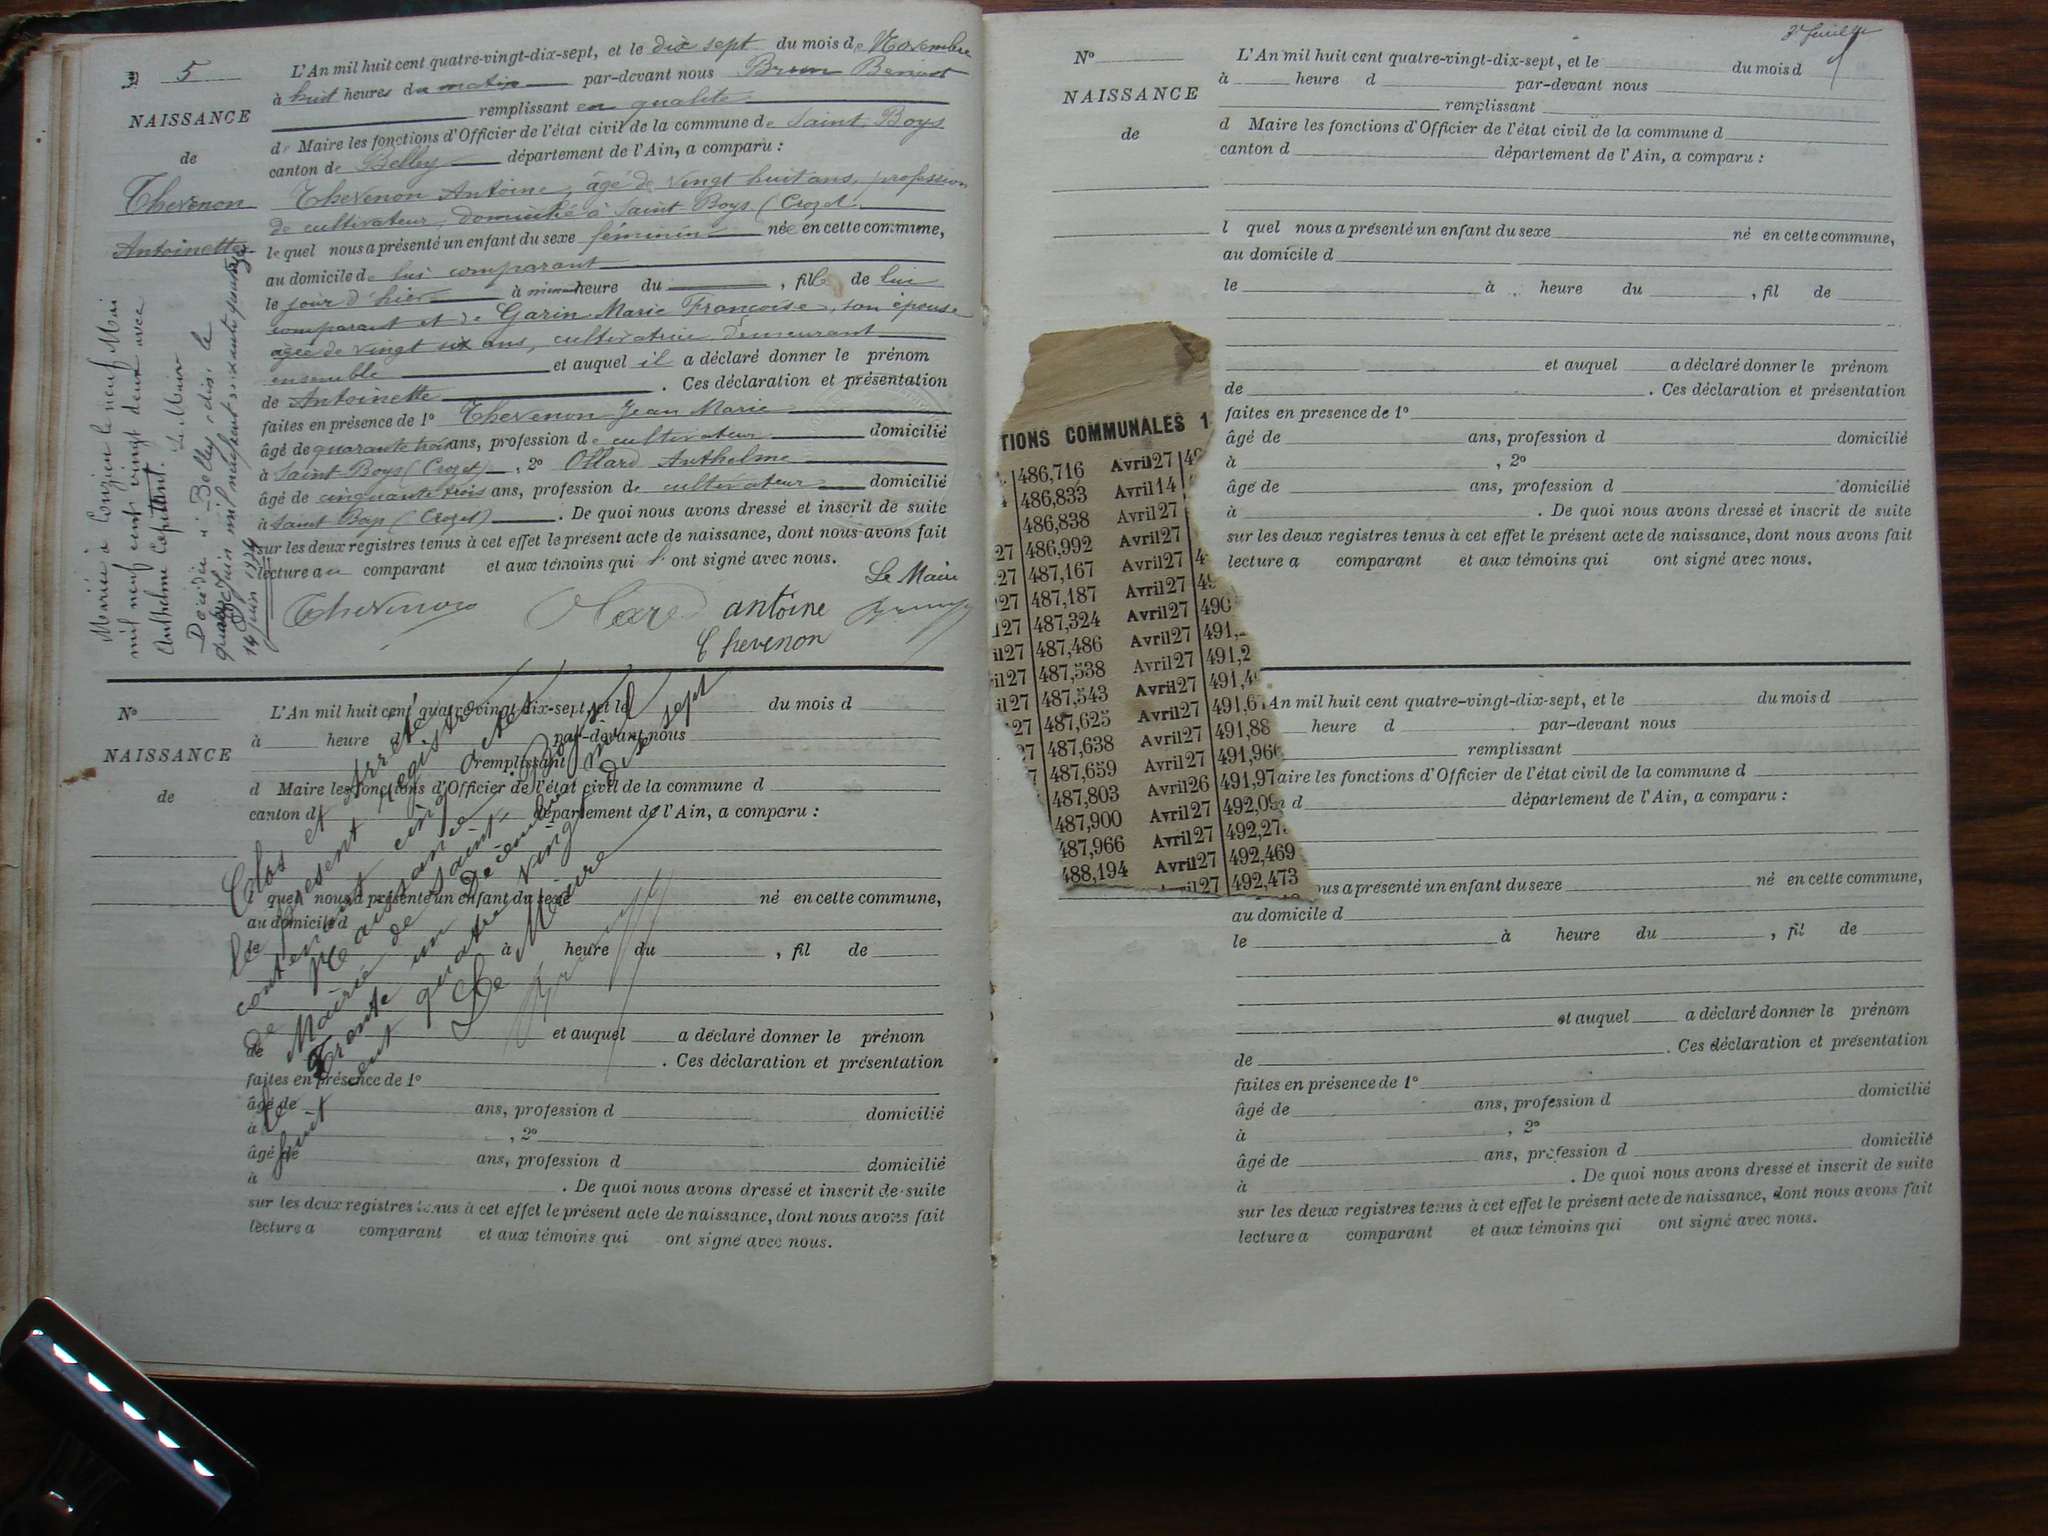 5
NAISSANCE
de
Thevenon
Antoinette
L'An mil huit cent quatre-vingt-dix-sept, et le dix sept du mois de Novembre
à huit heures du matin par-devant nous Brun Benoit
remplissant en qualité
de Maire les fonctions d'Officier de l'état civil de la commune de Saint Boys
canton de Belley département de l'Ain, a comparu :
Thevenon Antoine, âgé de vingt huit ans, profession
de cultivateur, domicilié à Saint-Boys (Crozet
le quel nous a présenté un enfant du sexe féminin née en cette commune,
au domicile de lui comparant
le jour d'hier à heure du , fille de lui
comparant et de Garin Marie Françoise, son épouse
agée de vingt six ans, cultivatrice, demeurant
ensemble et auquel il a déclaré donner le prénom
de Antoinette . Ces déclaration et présentation
faites en présence de 1° Thevenon Jean Marie
âgé de quarante trois ans, profession de cultivateur domicilié
à Saint-Boys (Crozet) , 2° Ollard Anthelme
âgé de cinquante trois ans, profession de cultivateur domicilié
à Saint Boys (Crozet) . De quoi nous avons dressé et inscrit de suite
sur les deux registres tenus à cet effet le présent acte de naissance, dont nous avons fait
lecture au comparant et aux témoins qui l'ont signé avec nous.
Le Maire
Thevenon antoine
Thevenon
Mariée à Conzieu le neuf Mai
mil neuf cent vingt deux avec
Anthelme Capitant. Le Maire
Décédée à Belley (Ain) le
quatorze Juin mil neuf cent soixante quatorze
14 Juin 1974
N°
NAISSANCE
de
L'An mil huit cent quatre-vingt-dix-sept, et le du mois d
à heure d par-devant nous
remplissant
d Maire les fonctions d'Officier de l'état civil de la commune d
canton d département de l'Ain, a comparu :
quel nous a présenté un enfant du sexe né en cette commune,
au domicile d
le à heure du , fil de
et auquel a déclaré donner le prénom
de . Ces déclaration et présentation
faites en présence de 1°
âgé de ans, profession d domicilié
à , 2°
âgé de ans, profession d domicilié
à . De quoi nous avons dressé et inscrit de suite
sur les deux registres tenus à cet effet le présent acte de naissance, dont nous avons fait
lecture a comparant et aux témoins qui ont signé avec nous.
Clos et arrêté
le présent registre
contenant cinq actes
de Naissance
Mairie de Saint-Boys
le Trente un Décembre mil
huit cent quatre vingt dix sept
Le Maire
3e feuille
N°
NAISSANCE
de
L'An mil huit cent quatre-vingt-dix-sept, et le du mois d
à heure d par-devant nous
remplissant
d Maire les fonctions d'Officier de l'état civil de la commune d
canton d département de l'Ain, a comparu :
l quel nous a présenté un enfant du sexe né en cette commune,
au domicile d
le à heure du , fil de
et auquel a déclaré donner le prénom
de . Ces déclaration et présentation
faites en presence de 1°
âgé de ans, profession d domicilié
à , 2°
âgé de ans, profession d domicilié
à . De quoi nous avons dressé et inscrit de suite
sur les deux registres tenus à cet effet le présent acte de naissance, dont nous avons fait
lecture a comparant et aux témoins qui ont signé avec nous.
TIONS COMMUNALES 1
486,716 Avril 27 49
486,833 Avril 14
486,838 Avril 27
27 486,992 Avril 27
27 487,167 Avril 27 4
27 487,187 Avril 27 49
27 487,324 Avril 27 490
il 27 487,486 Avril 27 491,
il 27 487,538 Avril 27 491,2
il 27 487,543 Avril 27 491,4
27 487,625 Avril 27 491,67
27 487,638 Avril 27 491,88
7 487,659 Avril 27 491,966
487,803 Avril 26 491,97
487,900 Avril 27 492,09
487,966 Avril 27 492,27
488,194 Avril 27 492,469
il 27 492,473
An mil huit cent quatre-vingt-dix-sept, et le du mois d
heure d par-devant nous
remplissant
aire les fonctions d'Officier de l'état civil de la commune d
d département de l'Ain, a comparu :
ous a présenté un enfant du sexe né en cette commune,
au domicile d
le à heure du , fil de
et auquel a déclaré donner le prénom
de . Ces déclaration et présentation
faites en présence de 1°
âgé de ans, profession d domicilié
à , 2°
âgé de ans, profession d domicilié
à . De quoi nous avons dressé et inscrit de suite
sur les deux registres tenus à cet effet le présent acte de naissance, dont nous avons fait
lecture a comparant et aux témoins qui ont signé avec nous.